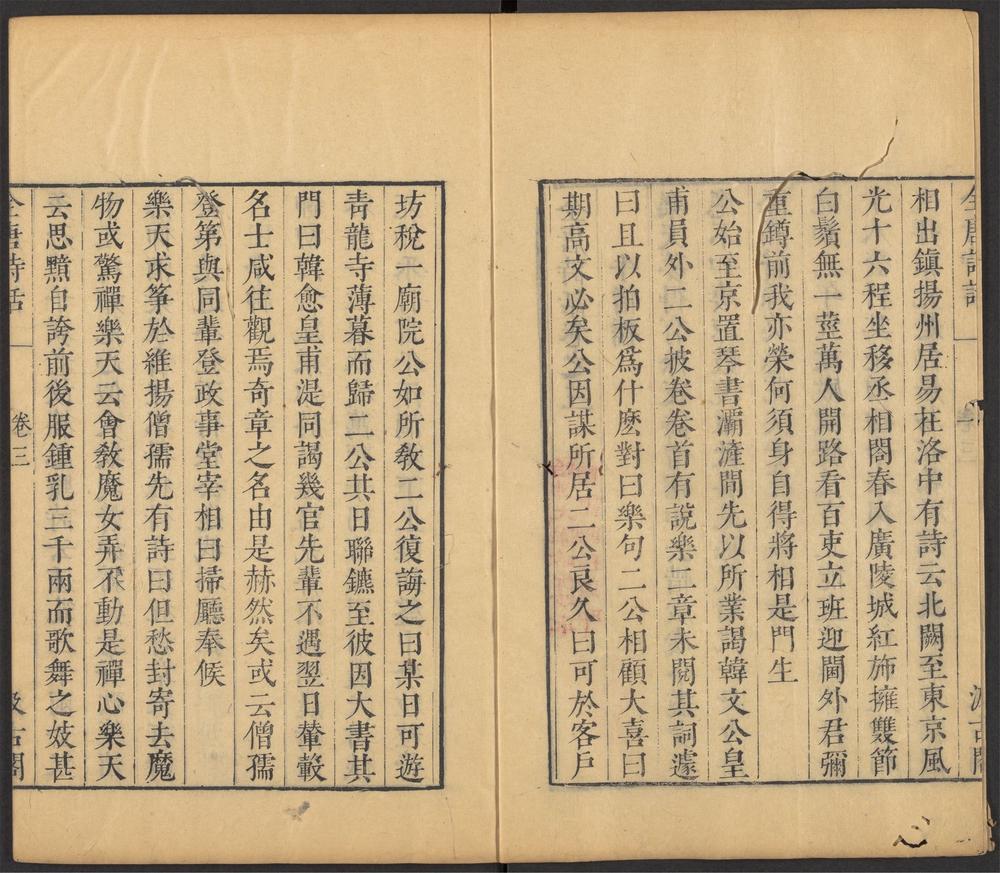 全唐詩話
汲古閣
相出鎮揚州居易在洛中有詩云北闕至東京風
光十六程坐移丞相閣春入廣陵城紅旆擁雙節
白鬚無一莖萬人開路看百吏立班迎閫外君彌
重鐏前我亦榮何須身自得將相是門生
公始至京置琴書灞滻間先以所業謁韓文公皇
甫員外二公披卷卷首有說樂二章未閱其詞遽
曰且以拍板爲什麽對曰樂句二公相顧大喜曰
期高文必矣公因謀所居二公良久曰可於客戶
坊稅一廟院公如所敎二公復誨之曰某日可遊
靑龍寺薄暮而歸二公其日聯鑣至彼因大書其
門曰韓愈皇甫湜同謁幾官先輩不遇翌日輦轂
名士咸往觀焉奇章之名由是赫然矣或云僧孺
登第與同輩登政事堂宰相曰掃廳奉候
樂天求筝於維揚僧孺先有詩曰但愁封寄去魔
物或驚禪樂天云會敎魔女弄不動是禪心樂天
云思黯自誇前後服鍾乳三千兩而歌舞之妓甚
全唐詩話 卷三 汲古閣